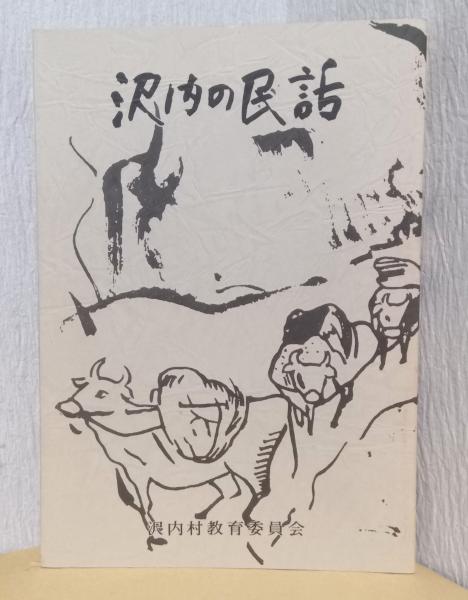 沢内の民話
沢内村教育委員会